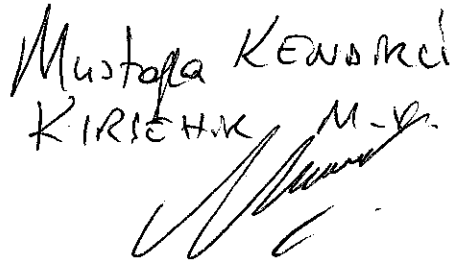 Mustafa KENDİRLİ
KIRŞEHİR M.V.